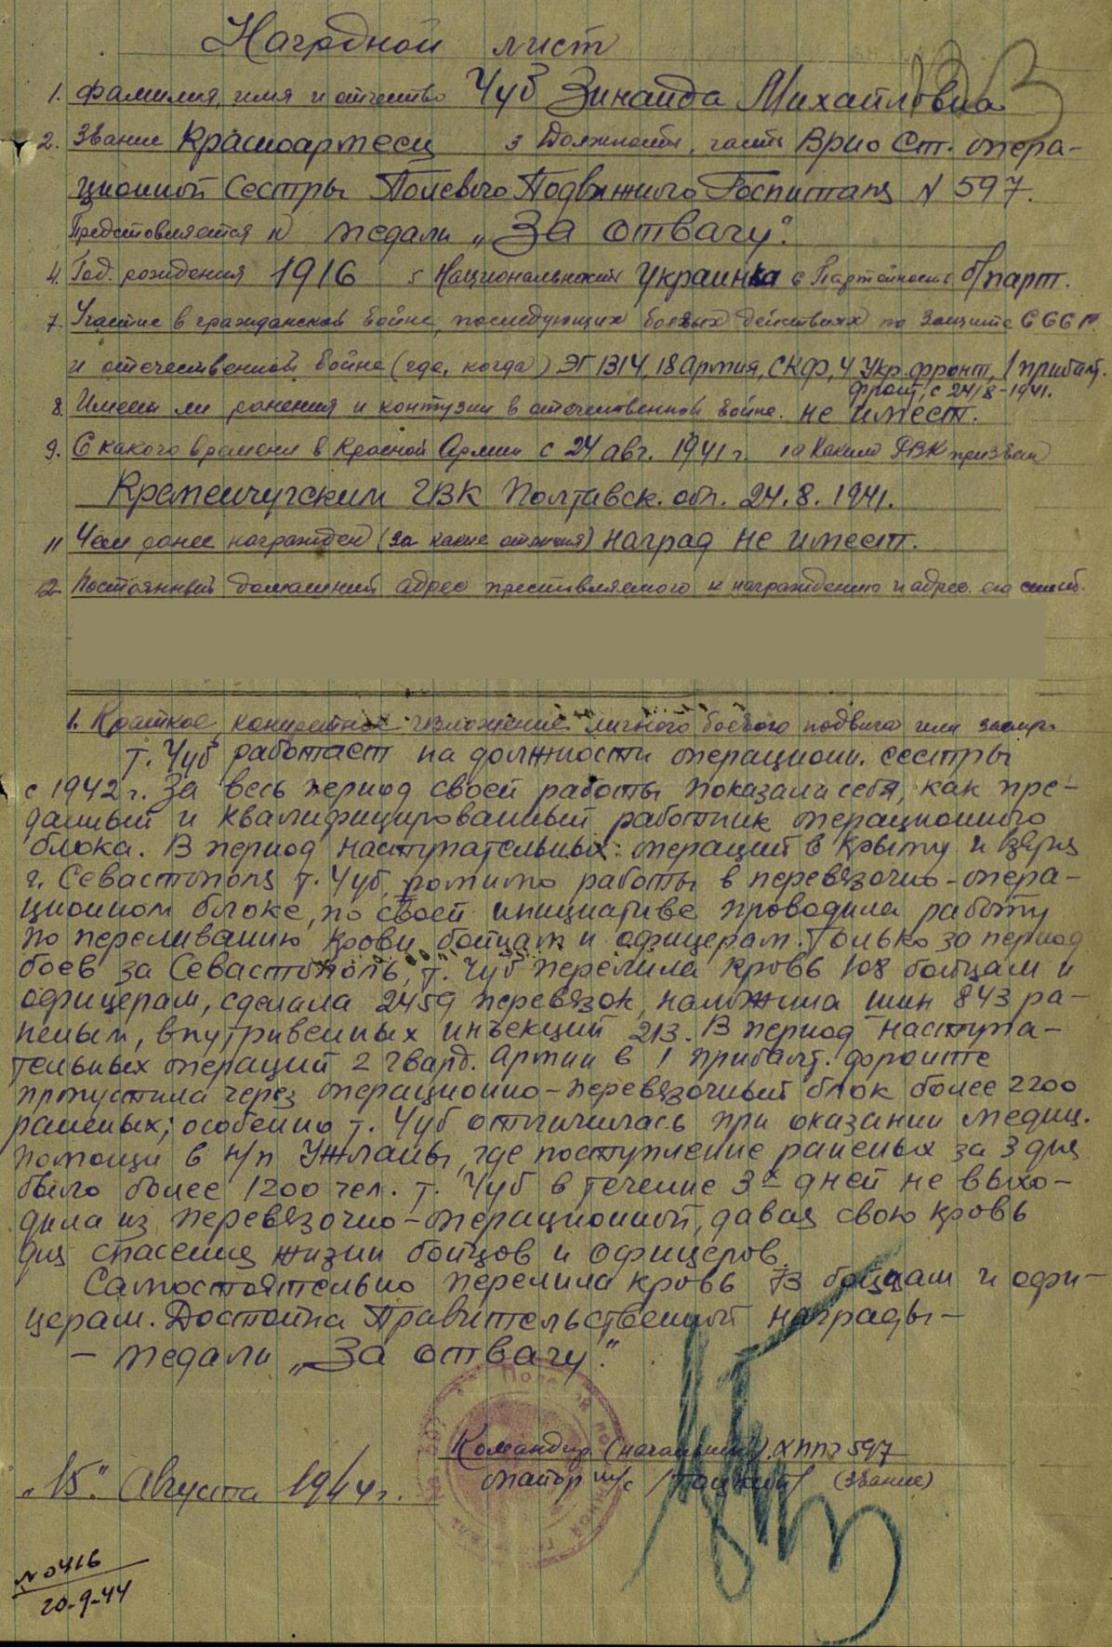 Наградной лист
1. Фамилия, имя и отчество Чуб Зинаида Михайловна
2. Звание Красноармеец 3 Должность, часть Врио Ст. опера-
ционной Сестры Полевого Подвижного Госпиталя N 597.
Представляется к медали „За отвагу".
4. Год рождения 1916 5 Национальность Украинка 6 Партейность б/парт.
7. Участие в гражданской войне, последующих боевых действиях по защите СССР
и отечественной войне (где, когда) ЭГ 1314, 18 Армия, СКФ, 4 Укр. фронт, 1 прибалт.
фронт, с 24/8-1941.
8. Имеет ли ранения и контузии в отечественной войне. не имеет.
9. С какого времени в Красной Армии с 24 авг. 1941 г. 10 Каким РВК призван
Кременчугским ГВК Полтавск. обл. 24.8.1941.
11 Чем ранее награжден (за какие отличия) наград не имеет.
12 Постоянный домашний адрес представляемого к награждению и адрес его семьи.
1. Краткое, конкретное изложение личного боевого подвига или
т. Чуб работает на должности операционн. сестры
с 1942 г. За весь период своей работы показала себя, как пре-
данный и квалифицированный работник операционного
блока. В период наступательных операций в Крыму и взятия
г. Севастополя т. Чуб, помимо работы в перевязочно-опера-
ционном блоке, по своей инициативе проводила работу
по переливанию крови бойцам и офицерам. Только за период
боев за Севастополь, т. Чуб перелила кровь 108 бойцам и
офицерам, сделала 2459 перевязок, наложила шин 843 ра-
неным, внутривенных инъекций 213. В период наступа-
тельных операций 2 гвард. Армии в 1 прибалт. фронте
пропустила через операционно-перевязочный блок более 2200
раненых; особенно т. Чуб отличилась при оказании медиц.
помощи в н/п Ужланы, где поступление раненых за 3 дня
было более 1200 чел. т. Чуб в течение 3х дней не выхо-
дила из перевязочно-операционной, давая свою кровь
для спасения жизни бойцов и офицеров.
Самостоятельно перелила кровь 73 бойцам и офи-
церам. Достойна Правительственной награды -
- медали „За отвагу".
Командир (начальник) ХППГ 597
майор м/с (звание)
„15" Августа 1944 г.
N 0416
20-9-44